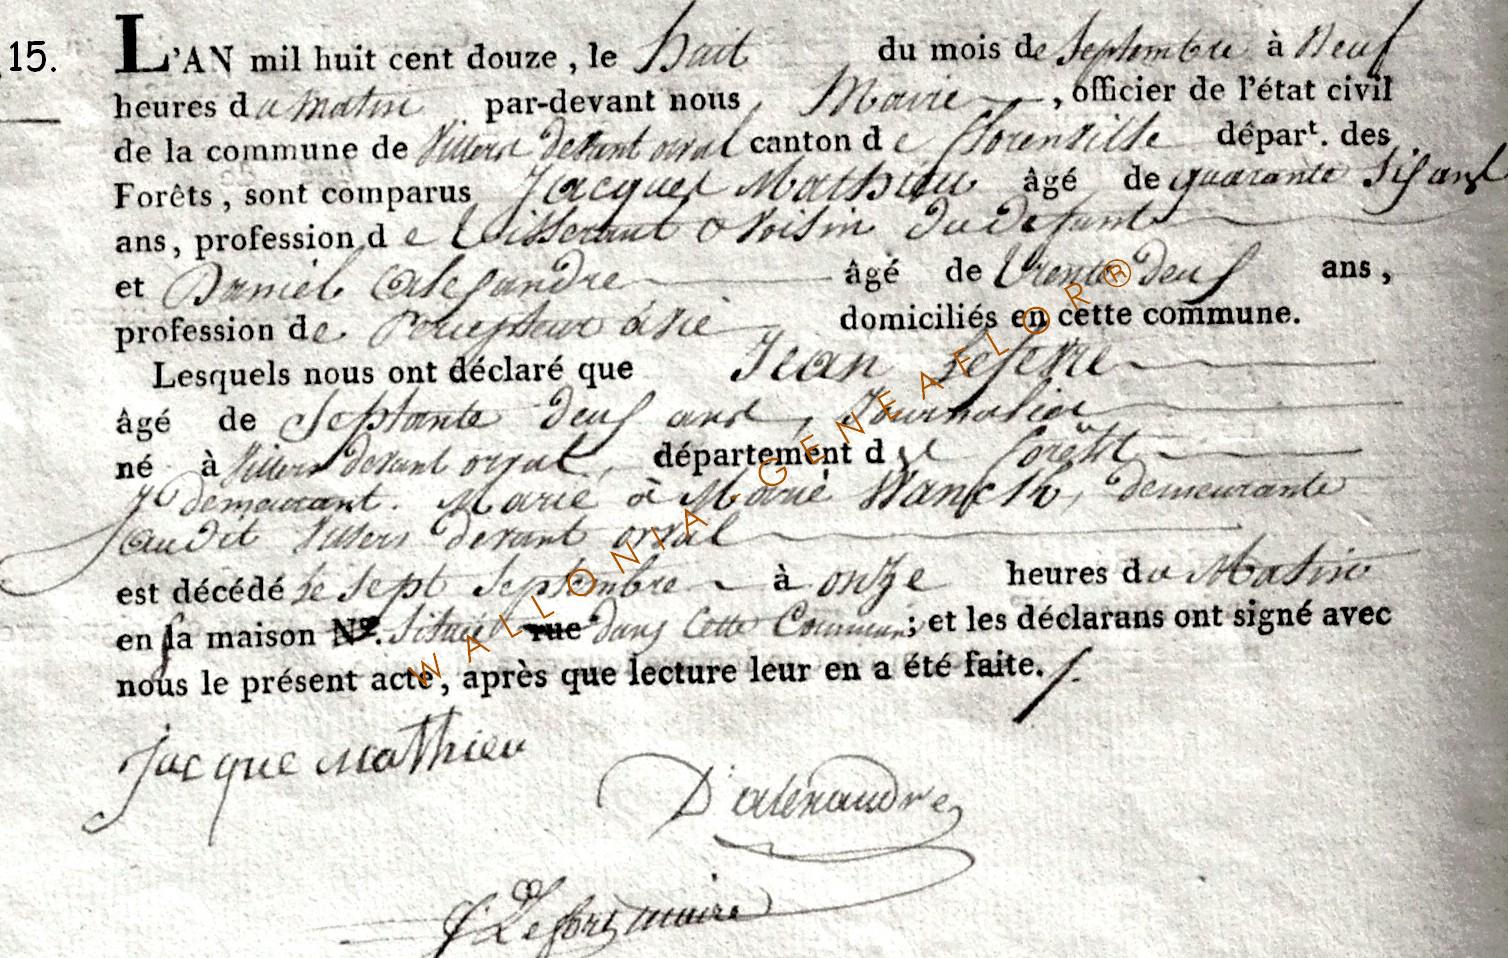 15.
L'AN mil huit cent douze, le huit du mois de Septembre à Neuf
heures du matin par-devant nous, Maire, officier de l'état civil
de la commune de Villers devant orval canton de florenville départ. des
Forêts, sont comparus Jacques Mathieu âgé de quarante Sif ans
ans, profession de Tisserant & Voisin du defunt
et Daniel Alefandre âgé de trente deuf ans,
profession de domiciliés en cette commune.
Lesquels nous ont déclaré que Jean Lefevre
âgé de Septante deuf ans, Journalier
né à Villers devant orval, département des forêts
y demeurant. Marié à Marie demeurante
audit Villers devant orval
est décédé le sept Septembre à onze heures du Matin
en sa maison N°. Située rue dans Cette Commune; et les déclarans ont signé avec
nous le présent acte, après que lecture leur en a été faite.
jacque mathieu
D'alexandre
Lefort maire
WALLONIA.GENEAFLOR®